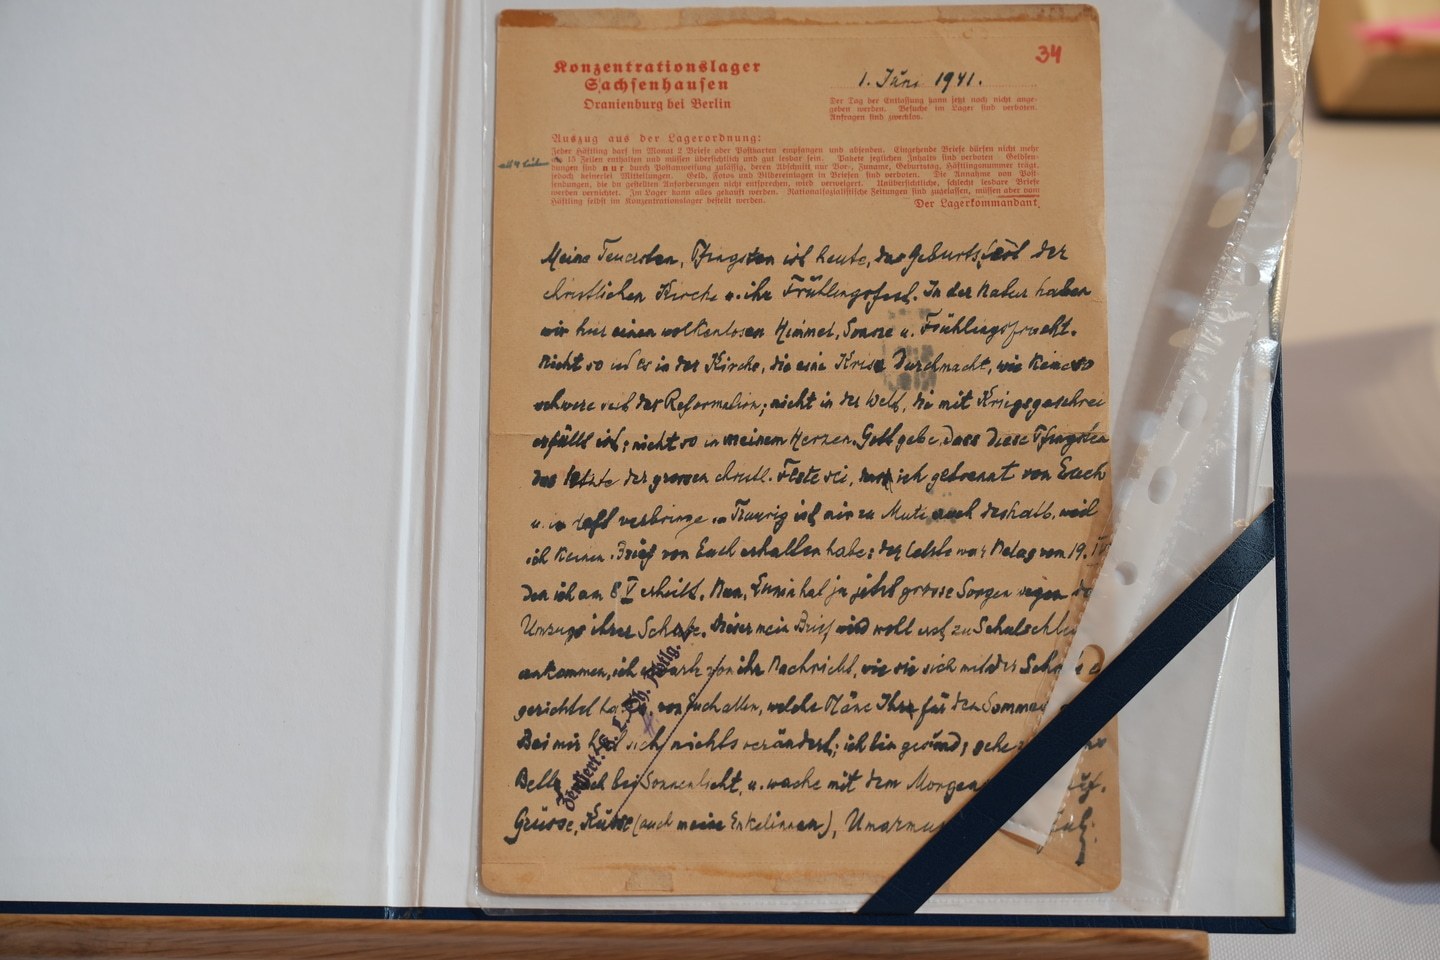 34
Konzentrationslager
Sachsenhausen
Oranienburg bei Berlin
1. Juni 1941.
Der Tag der Entlassung kann jetzt noch nicht ange-
geben werden. Besuche im Lager sind verboten.
Anfragen sind zwecklos.
Auszug aus der Lagerordnung:
Jeder Häftling darf im Monat 2 Briefe oder Postkarten empfangen und absenden. Eingehende Briefe dürfen nicht mehr
als 15 Zeilen enthalten und müssen übersichtlich und gut lesbar sein. Pakete jeglichen Inhalts sind verboten. Geldsen-
dungen sind nur durch Postanweisung zulässig, deren Abschnitt nur Vor-, Zuname, Geburtstag, Häftlingsnummer trägt,
jedoch keinerlei Mitteilungen. Geld, Fotos und Bildereinlagen in Briefen sind verboten. Die Annahme von Post-
sendungen, die den gestellten Anforderungen nicht entsprechen, wird verweigert. Unübersichtliche, schlecht lesbare Briefe
werden vernichtet. Im Lager kann alles gekauft werden. Nationalsozialistische Zeitungen sind zugelassen, müssen aber vom
Häftling selbst im Konzentrationslager bestellt werden.
Der Lagerkommandant.
Meine Teuersten, Pfingsten ist heute, das Geburtsfest der
christlichen Kirche u. ihr Frühlingsfest. In der Natur haben
wir hier einen wolkenlosen Himmel, Sonne u. Frühlingspracht.
Nicht so ist es in der Kirche, die eine Krise durchmacht, wie keine so
schwere seit der Reformation; nicht in der Welt, die mit Kriegsgeschrei
erfüllt ist; nicht so in meinem Herzen. Gott gebe, dass diese Pfingsten
das letzte der grossen christl. Feste sei, das ich getrennt von Euch
u. in Haft verbringe. Traurig ist mir zu Mute auch deshalb, weil
ich keinen Brief von Euch erhalten habe: der letzte war vom 19.
den ich am 8 V erhielt. Nun, hat ja jetzt grosse Sorgen wegen
Umzugs ihrer Schule. Dieser mein Brief wird wohl erst zu Schulschlu
ankommen, ich von ihr Nachricht, wie sie sich mit der
gerichtet von Euch allen, welche Pläne Ihr für den Sommer
Bei mir hat sich nichts verändert; ich bin gesund; gehe
Bett noch bei Sonnenlicht, u. wache mit dem Morgen auf.
Grüsse, Küsse (auch meine Enkelinnen),
Zensiert: K. L. Sh. Abtlg.